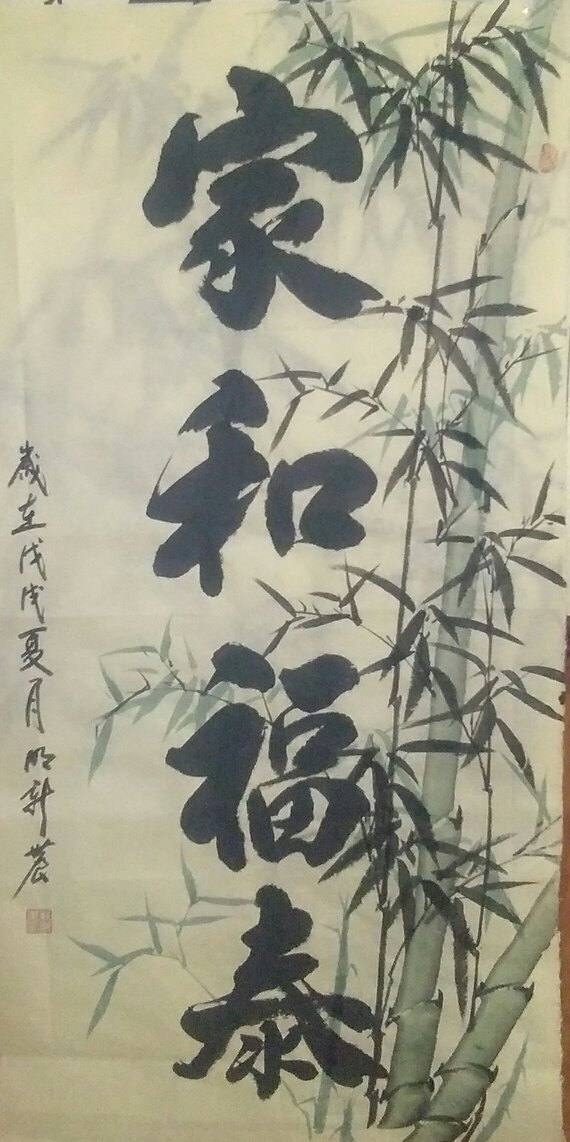 家和福泰
歲在戊戌夏月